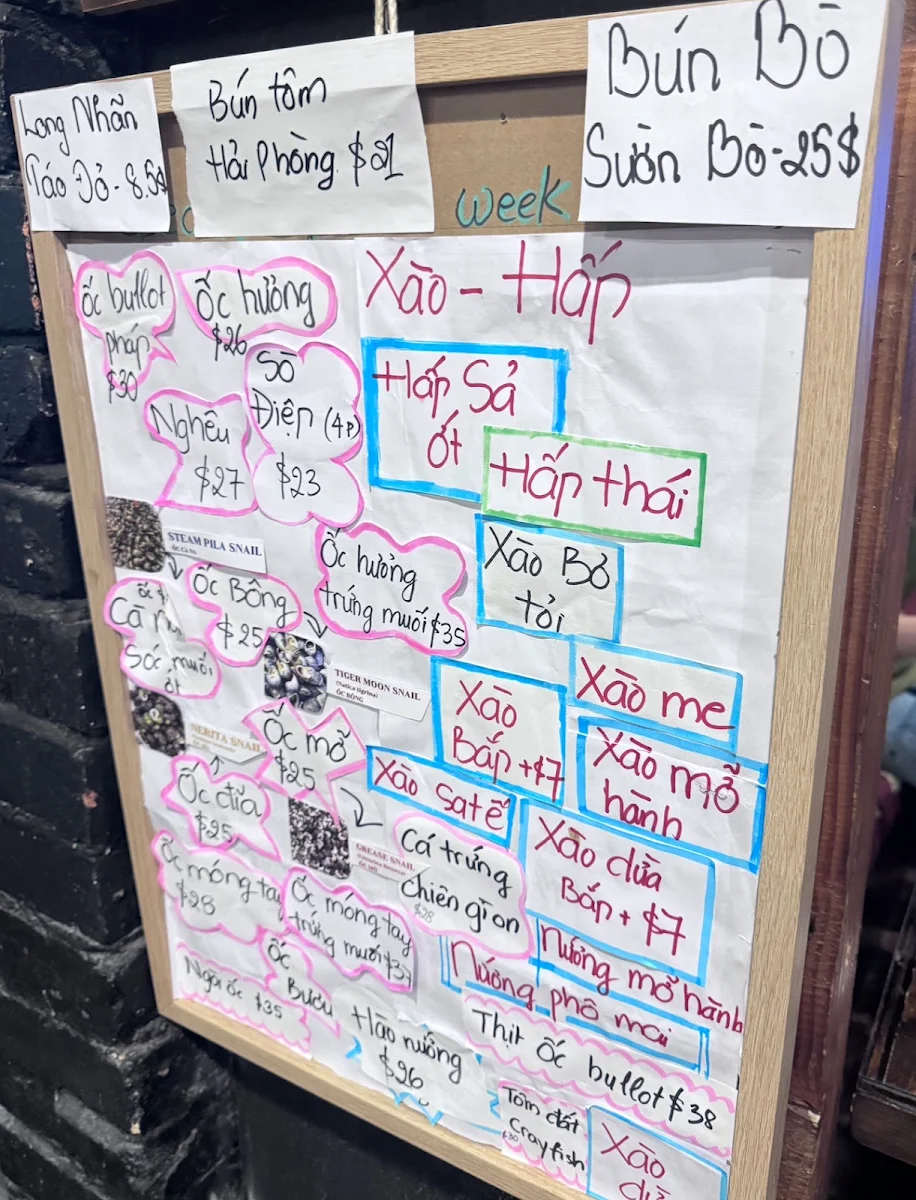 Long Nhãn
Táo Đỏ - 8.5$
Bún tôm
Hải Phòng $21
Bún Bò
Sườn Bò - 25$
week
ốc bullot
pháp
$30
ốc hương
$26
Sò
Điệp (4P)
$23
Nghêu
$27
Xào - Hấp
Hấp Sả
ớt
Hấp thái
STEAM PILA SNAIL
Ốc hương
trứng muối $35
Xào Bơ
tỏi
ốc
Cà
Sóc muối
ớt
Ốc Bông
$25
TIGER MOON SNAIL
(Natica tigrina)
ỐC BÔNG
Xào me
Xào
Bắp +$7
Xào mỡ
hành
NERITA SNAIL
Ốc mỡ
$25
Xào Sa tế
Ốc đĩa
$25
GREASE SNAIL
ỐC MỠ
Cá trứng
chiên giòn
$28
Xào dừa
Bắp + $7
Ốc móng tay
$28
Ốc móng tay
trứng muối
Nướng mỡ hành
Nướng phô mai
Ngòi ốc $35
Ốc
Bươu
Hào nướng
$26
Thịt ốc bullot $38
Tôm đất
crayfish
$30
Xào